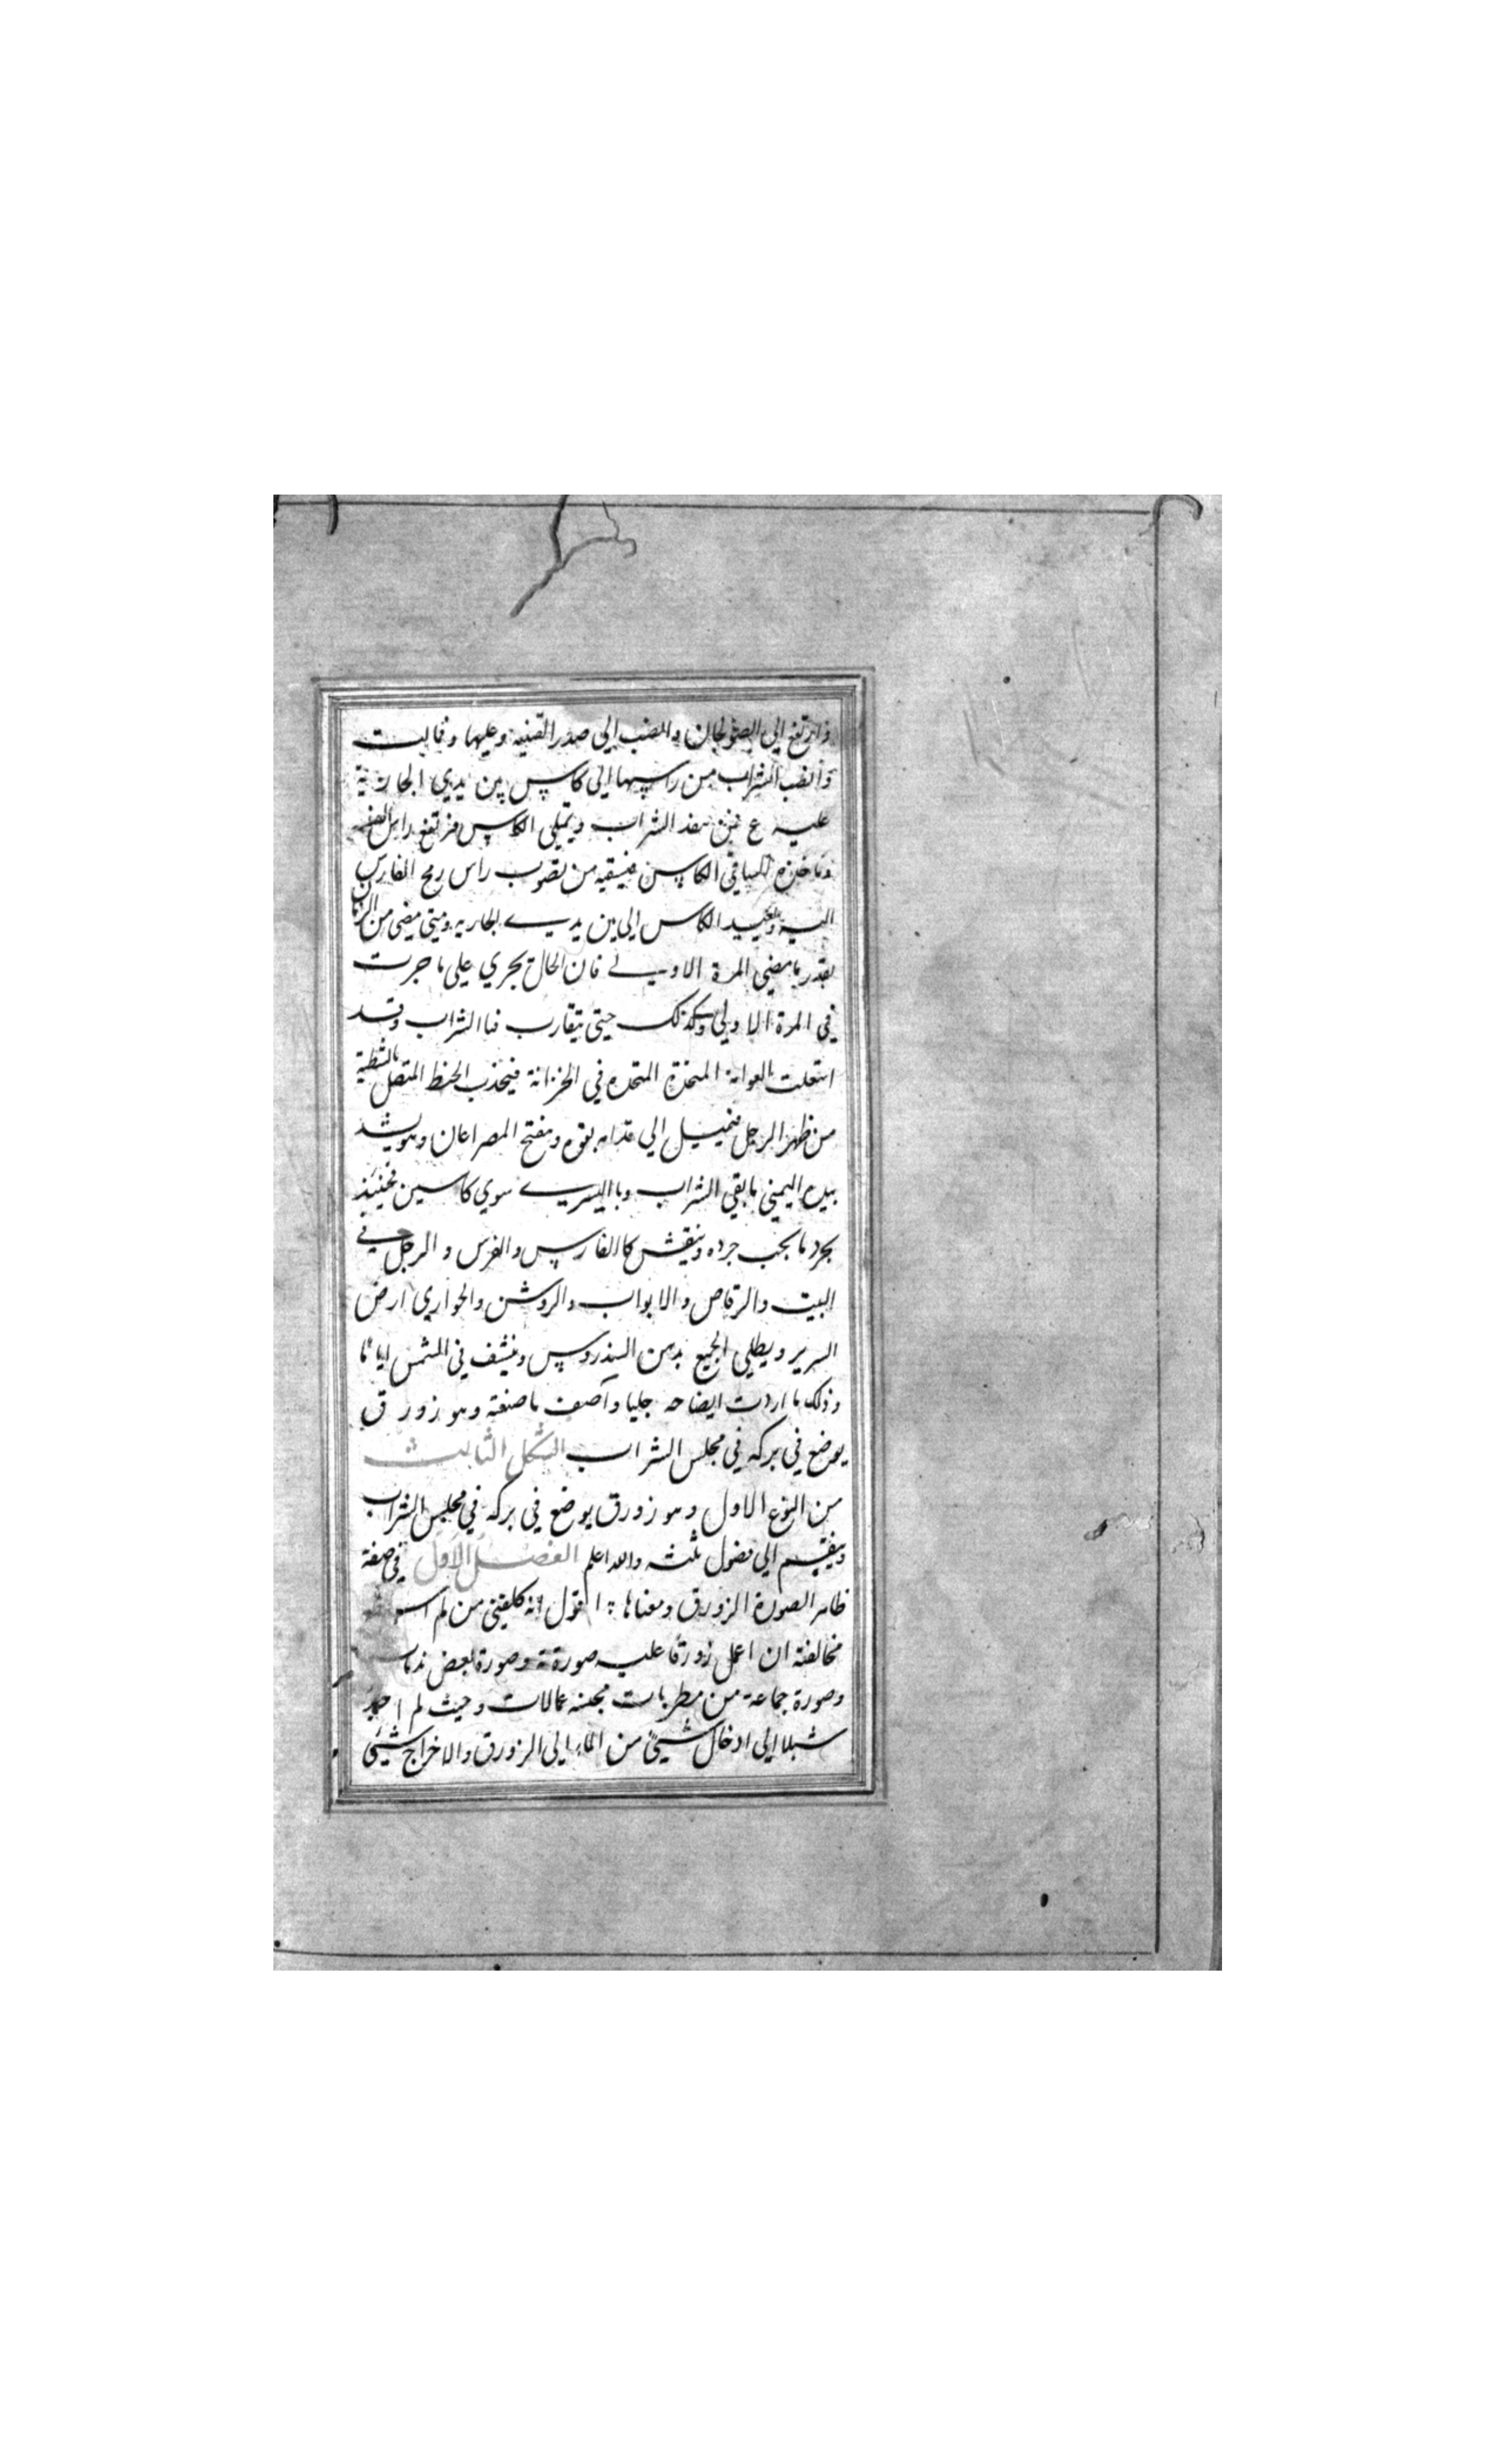 وارتفع الى الصولجان وانصب الى صدر القنينة وعليها وقالبت
وانصب الشراب من راسها الى كاس بين يدي الجارية
عليه ع الشراب ويمتلى الكاس فترتفع راس
الكاس من تصوب راس رمح الفارس
اليه وتعيد الكاس الى بين يدي الجاريه ومتى مضى من الزمان
بقدر ما مضى المرة الاولي فان الحال تجري على ما جرت
في المرة الاولي وكذلك حتى يتقارب فنا الشراب وقد
المتخذة المتخذه في الخزانة فينجذب الخيط المتصل بالشظية
من ظهر الرجل فيميل الى قدام بقوه ويفتح المصراعان وهو يشد
بيده اليمنى ما بقي الشراب وبا اليسري سوي كاسين فحينئذ
يجرد ما يجب جرده وينقش كا الفارس والفرس و الرجل في
البيت والرقاص والابواب والروشن والجواري ارض
السرير ويطلي الجميع بدهن السندروس وينشف في الشمس اياما
وذلك ما اردت ايضاحه جليا وآصف ما صنعة وهو زورق
يوضع في بركه في مجلس الشراب الشكل الثالث
من النوع الاول وهو زورق يوضع في بركه في مجلس الشراب
وينقسم الى فصول ثلثه والله اعلم الفصل الاول في صفة
ظاهر الصورة الزورق ومعناها : اقول انه كلفني من لم
مخالفته ان اعمل زورقا عليه صورته وصورة بعض
وصورة جماعة من مطربات وحيث لم اجد
سبيلا الى ادخال شيئ من الماء الى الزورق والاخراج شيئ